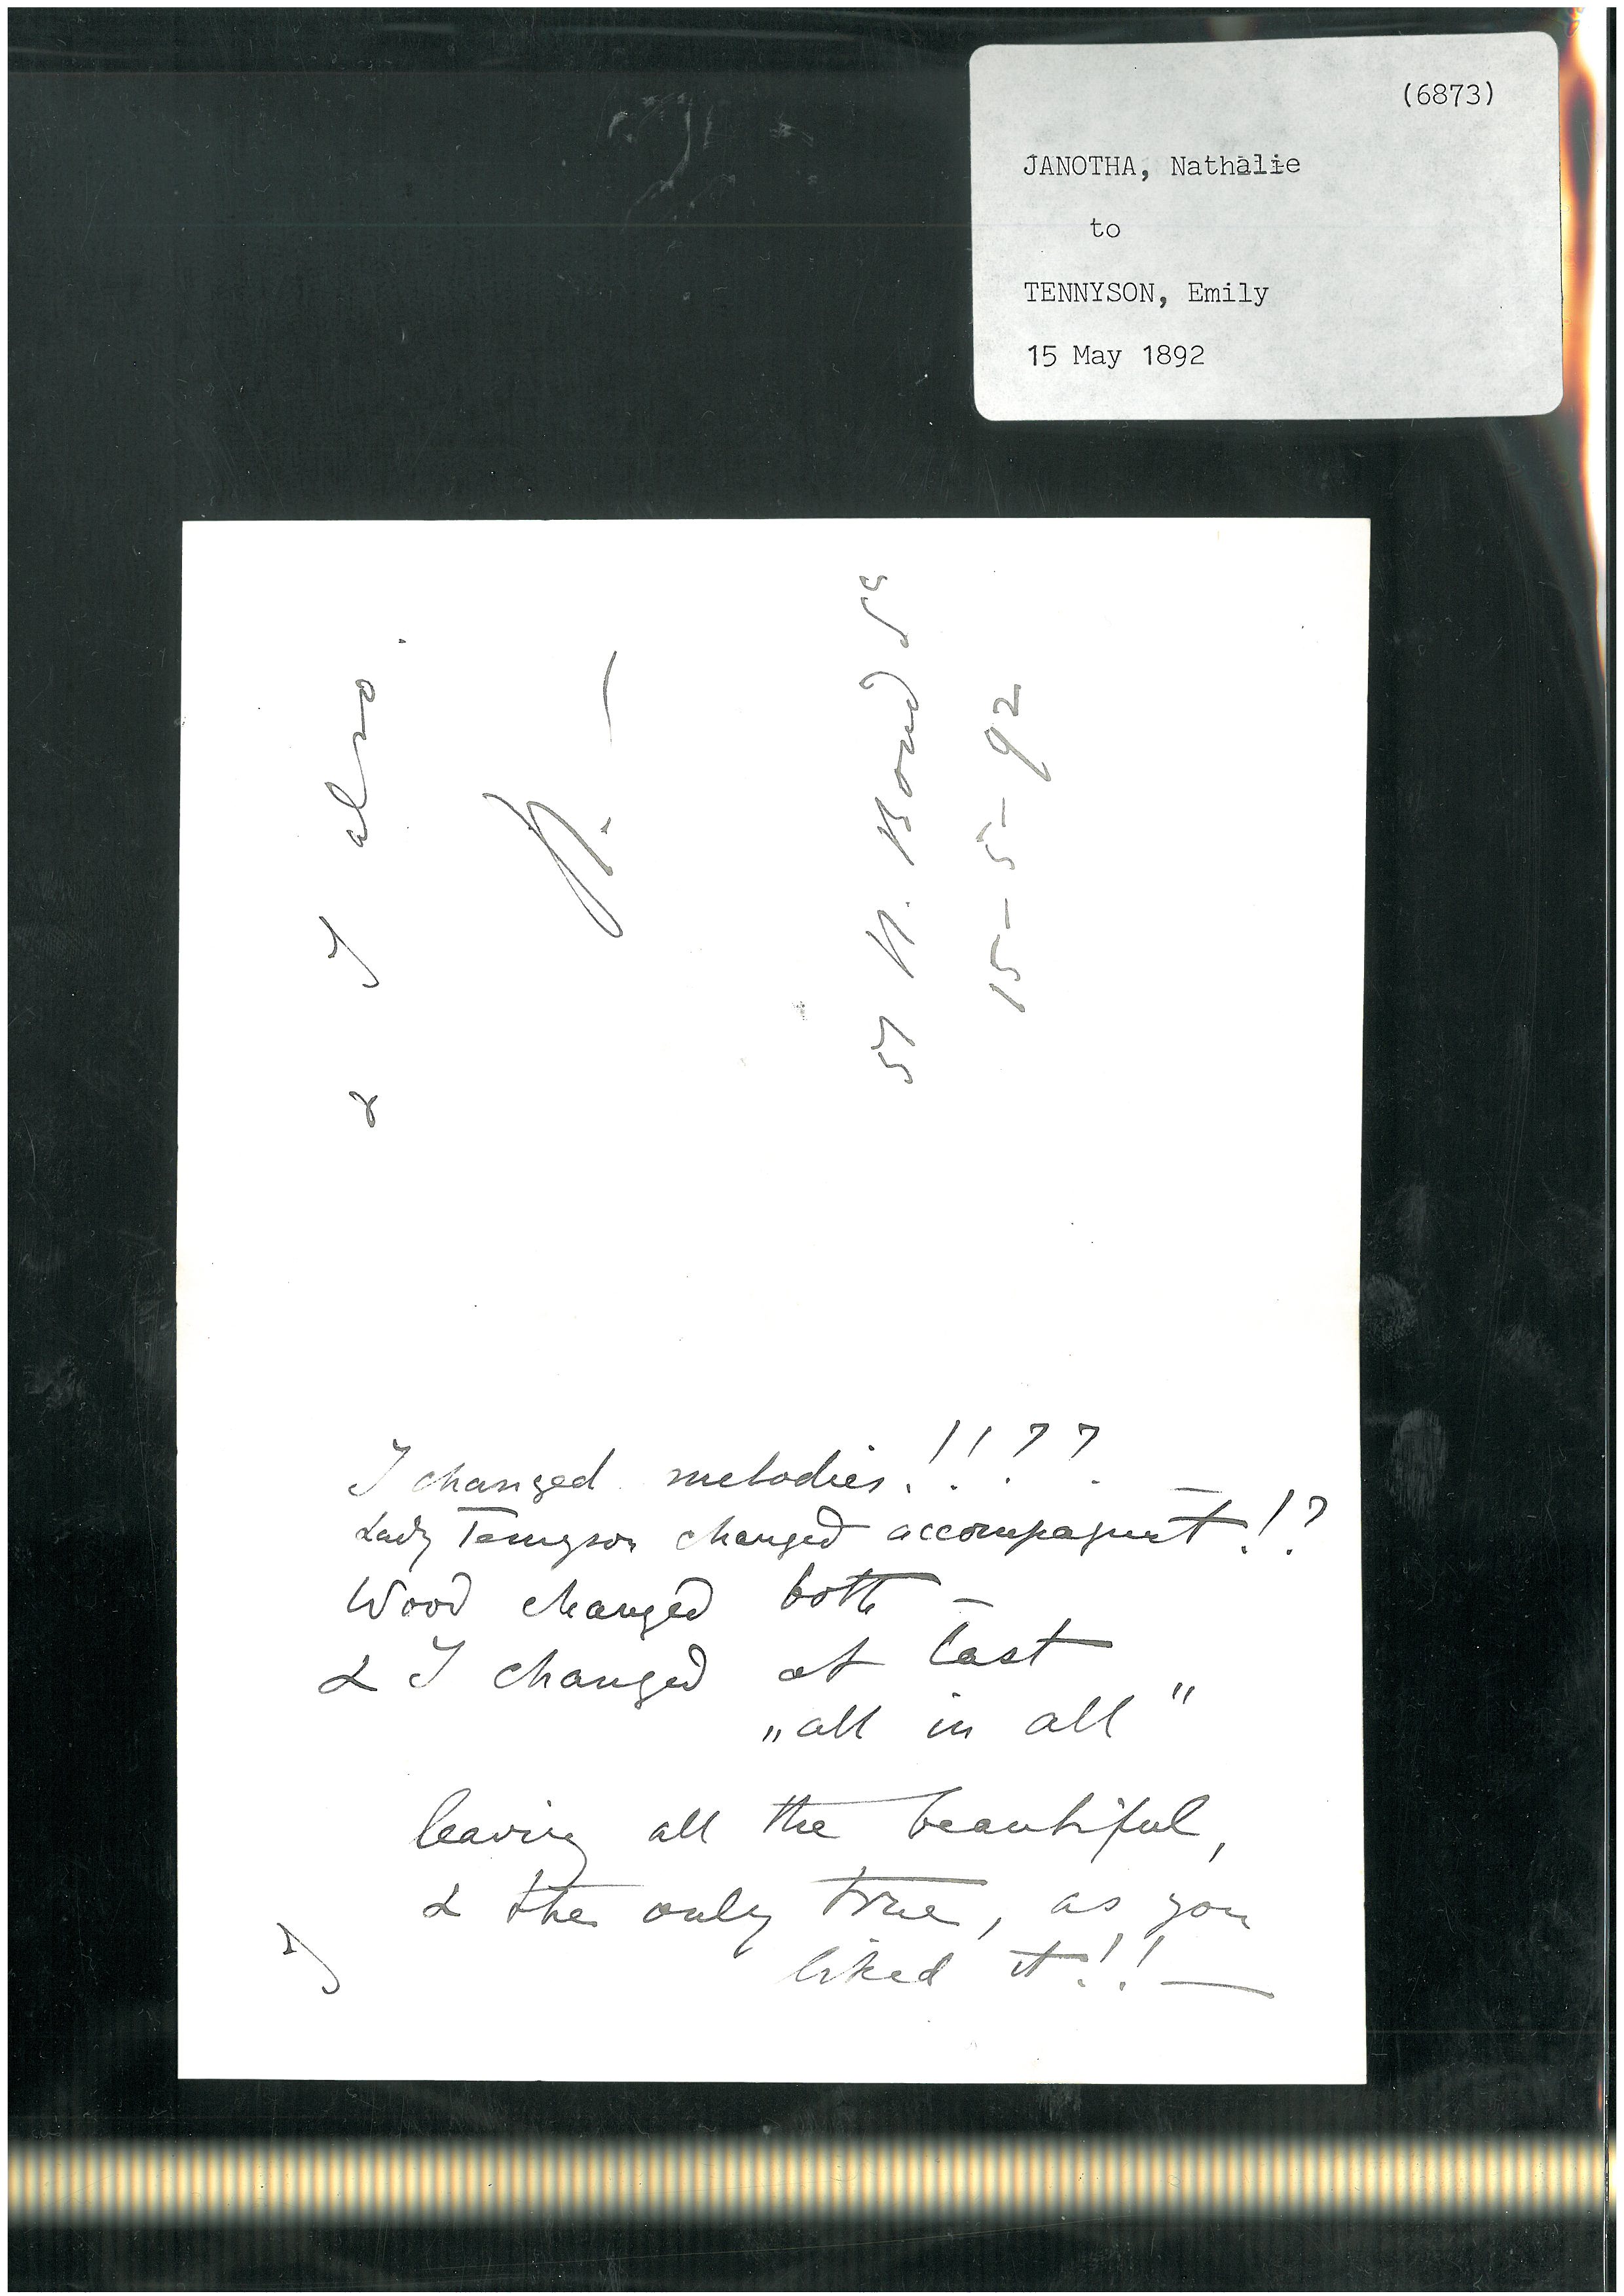 (6873)
JANOTHA, Nathalie
to
TENNYSON, Emily
15 May 1892
& I also.
N. —
57 N. Bond St
15-5-92
I changed melodies!!??
Lady Tennyson changed accompagnt!?
Wood changed both —
& I changed at last
„all in all"
leaving all the beautiful,
& the only true, as you
liked it!! —